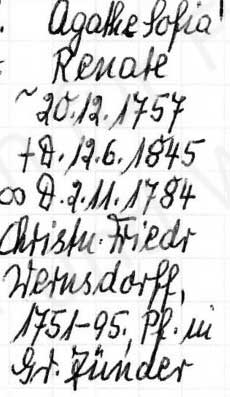 Agathe Sofia
Renate
~ 20.12.1757
+ D. 12.6.1845
∞ D. 2.11.1784
Christn. Friedr
Wernsdorff,
1751-95, Pf. in
Gr. Zünder